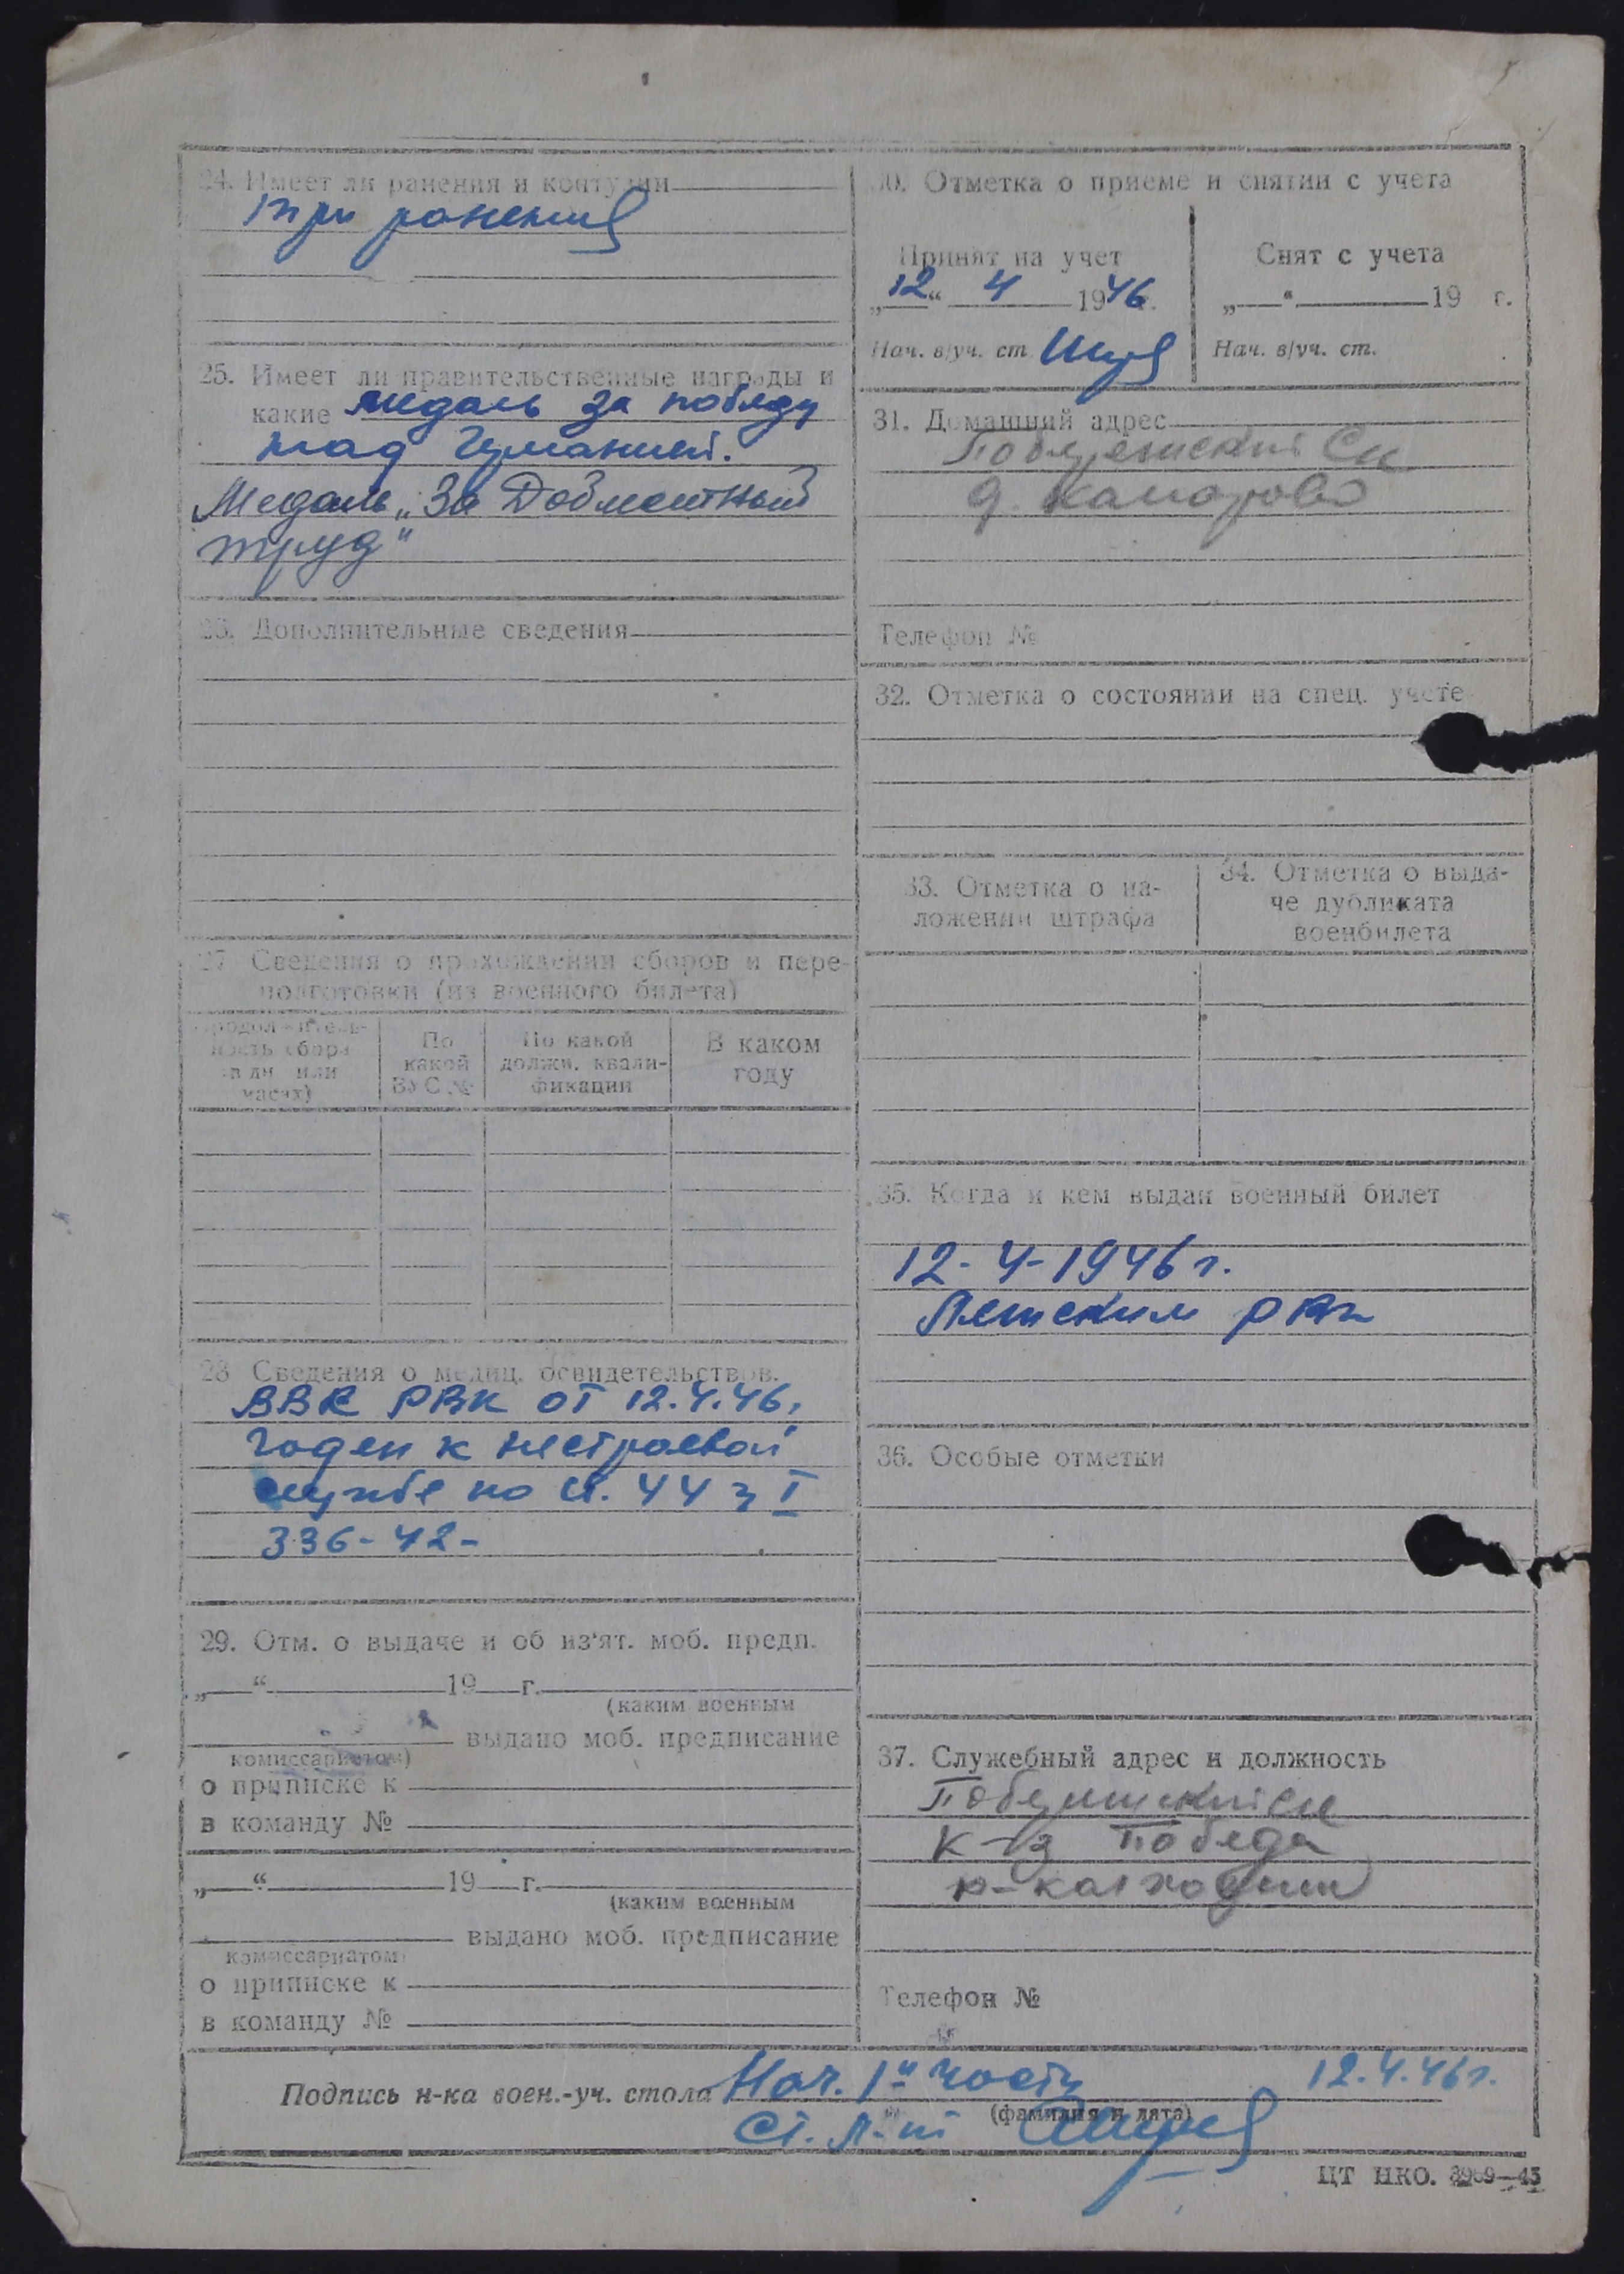 24. Имеет ли ранения и контузии
три ранения
25. Имеет ли правительственные награды и
какие медаль за победу
над Германией.
Медаль „За Доблестный
труд"
26. Дополнительные сведения
27 Сведения о прохождении сборов и пере-
подготовки (из военного билета)
Продолжитель-
ность сбора
(в дн. или
часах)
По
какой
ВУС №
По какой
должн. квали-
фикации
В каком
году
28 Сведения о медиц. освидетельствов.
ВВК РВК от 12.4.46,
годен к нестроевой
службе по ст. 44 I
336-42-
29. Отм. о выдаче и об из'ят. моб. предп.
„ “ 19 г.
(каким военным
выдано моб. предписание
комиссариатом)
о приписке к
в команду №
„ “ 19 г.
(каким военным
выдано моб. предписание
комиссариатом)
о приписке к
в команду №
30. Отметка о приеме и снятии с учета
Принят на учет
„12“ 4 1946 г.
Нач. в/уч. ст.
Снят с учета
„ “ 19 г.
Нач. в/уч. ст.
31. Домашний адрес
д.
Телефон №
32. Отметка о состоянии на спец. учете
33. Отметка о на-
ложении штрафа
34. Отметка о выда-
че дубликата
военбилета
35. Когда и кем выдан военный билет
12-4-1946 г.
РВК
36. Особые отметки
37. Служебный адрес и должность
к-з Победа
Телефон №
Подпись н-ка воен.-уч. стола Нач. 1й части 12.4.46г.
(фамилия и дата)
Ст. л-нт
ЦТ НКО. 3969—45